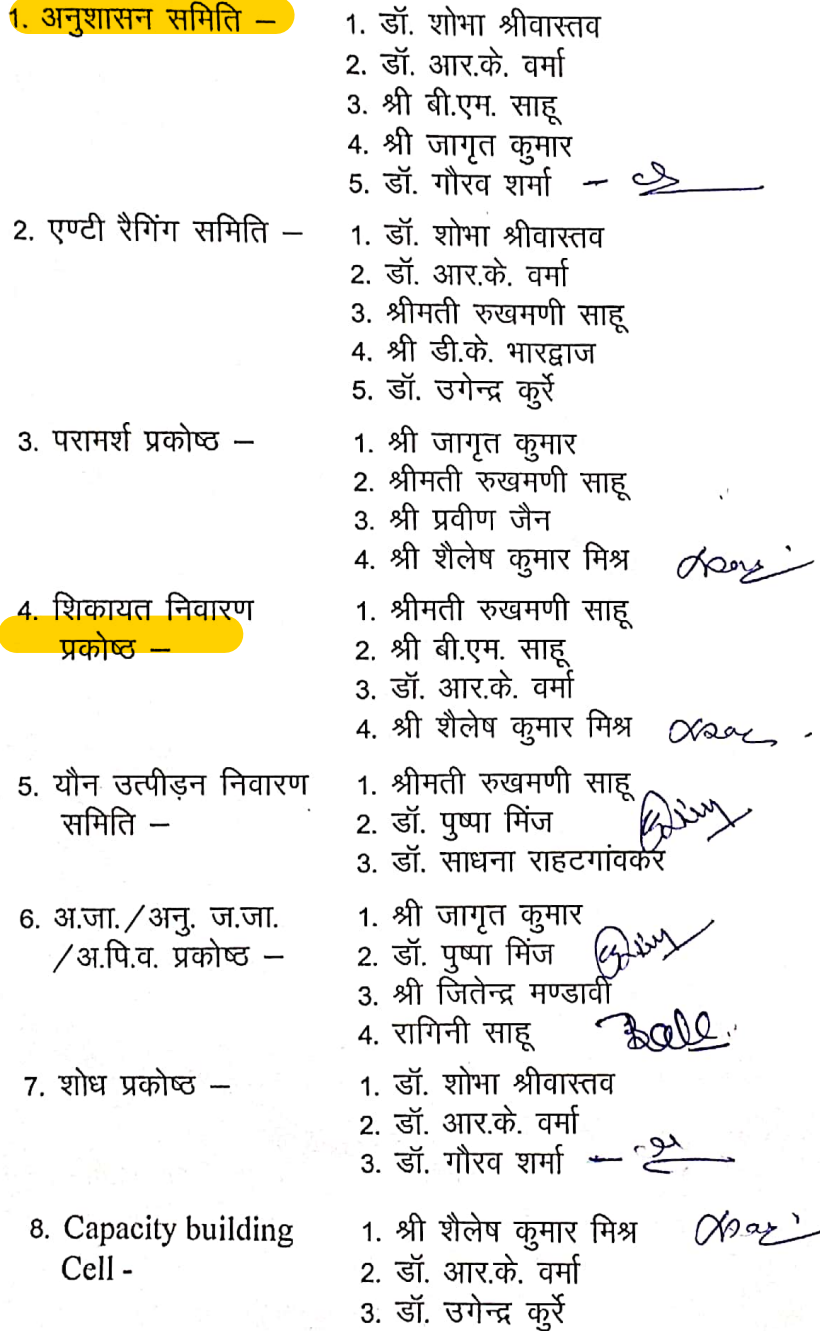 1. अनुशासन समिति –
1. डॉ. शोभा श्रीवास्तव
2. डॉ. आर.के. वर्मा
3. श्री बी.एम. साहू
4. श्री जागृत कुमार
5. डॉ. गौरव शर्मा –
2. एण्टी रैगिंग समिति –
1. डॉ. शोभा श्रीवास्तव
2. डॉ. आर.के. वर्मा
3. श्रीमती रुखमणी साहू
4. श्री डी.के. भारद्वाज
5. डॉ. उगेन्द्र कुर्रे
3. परामर्श प्रकोष्ठ –
1. श्री जागृत कुमार
2. श्रीमती रुखमणी साहू
3. श्री प्रवीण जैन
4. श्री शैलेष कुमार मिश्र
4. शिकायत निवारण
प्रकोष्ठ –
1. श्रीमती रुखमणी साहू
2. श्री बी.एम. साहू
3. डॉ. आर.के. वर्मा
4. श्री शैलेष कुमार मिश्र
5. यौन उत्पीड़न निवारण
समिति –
1. श्रीमती रुखमणी साहू
2. डॉ. पुष्पा मिंज
3. डॉ. साधना राहटगांवकर
6. अ.जा./अनु. ज.जा.
/अ.पि.व. प्रकोष्ठ –
1. श्री जागृत कुमार
2. डॉ. पुष्पा मिंज
3. श्री जितेन्द्र मण्डावी
4. रागिनी साहू
7. शोध प्रकोष्ठ –
1. डॉ. शोभा श्रीवास्तव
2. डॉ. आर.के. वर्मा
3. डॉ. गौरव शर्मा –
8. Capacity building
Cell -
1. श्री शैलेष कुमार मिश्र
2. डॉ. आर.के. वर्मा
3. डॉ. उगेन्द्र कुर्रे